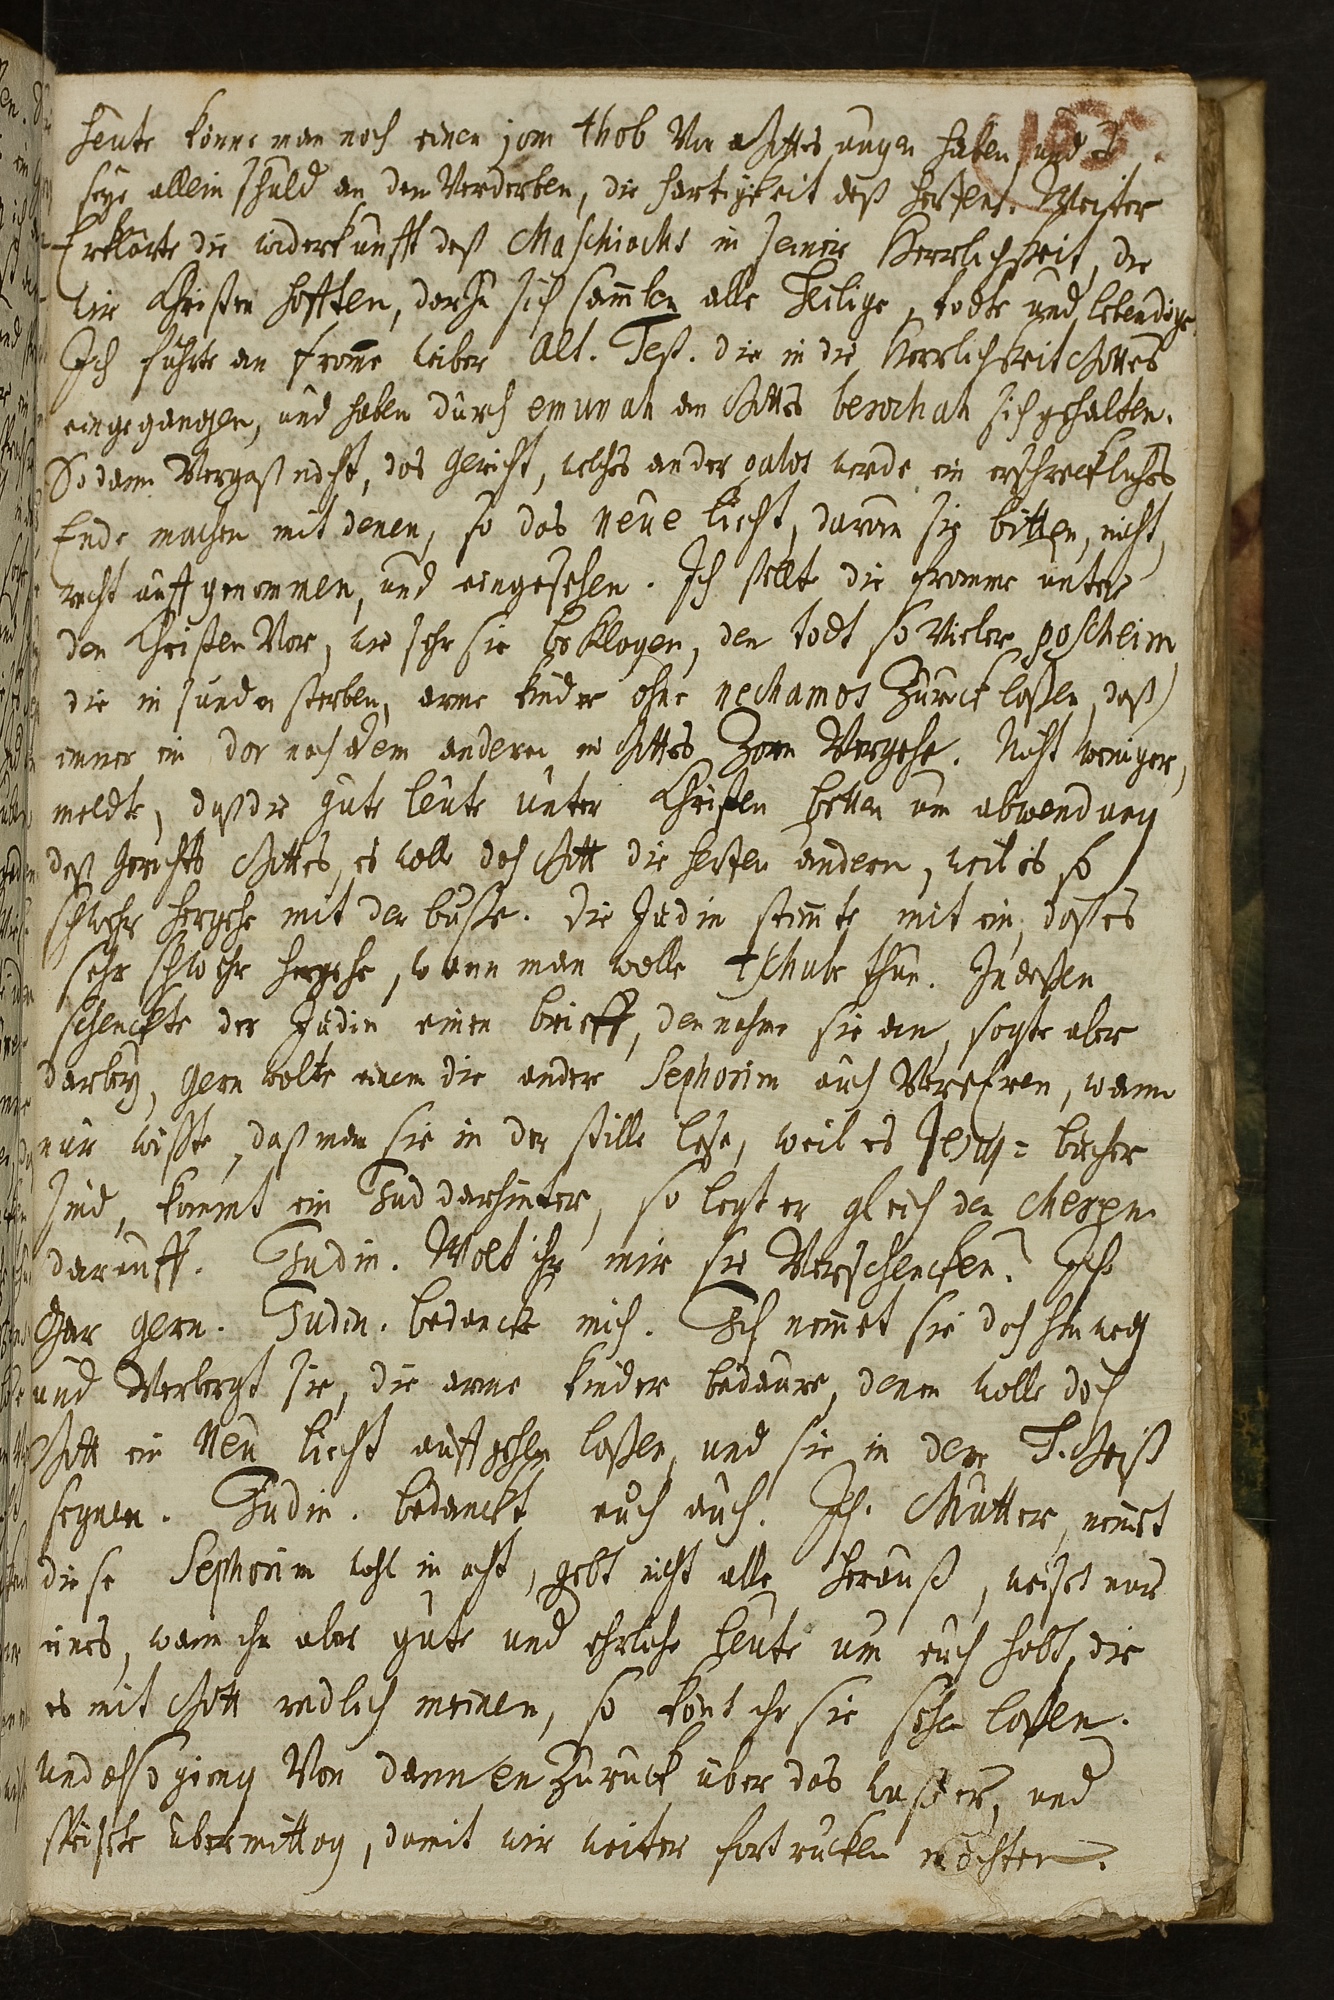 heute könne man noch einen jom thob Vor Gottes augen haben, und es
seye allein schuld an dem Verderben, die hartigkeit deß hertzens. Weiter
Erklärte die widerkunfft deß Maschiachs in seiner Herrlichkeit, die
wir Christen hofften, darzu sich samlen alle Heilige, todte und lebendige.
Ich führte an fromme weiber Alt. Test. die in die Herrlichkeit Gottes
eingegangen, und haben durch emunah an Gottes berochah sich gehalten.
So dann Vergaß nicht, das Gericht, welches an der galos werde ein erschreckliches
Ende machen mit denen, so das neue liecht, darum sie bitten, nicht
recht auffgenommen, und eingesehen. Ich stellte die fromme unter
den Christen Vor, wie sehr sie beklagen, den todt so vieler poscheim
die in sünden sterben, arme kinder ohne nechamos Zurück laßen, daß
immer ein dor nach dem anderen in Gottes Zorn Vergehe. Nicht weniger,
meldte, daß die gute leute unter Christen betten um abwendung
deß Gerichts Gottes, es wolle doch Gott die hertzen andern, weil es so
schwehr hergehe mit der buße. Die Jüdin stimte mit ein, daß es
sehr schwehr hergehe, wann man wolle tschube thun. Indeßen
schenckte der Jüdin einen brieff, den nahme sie an, sagte aber
darbey, gern wolte einem die andere Sephorim auch Verehren, wann
nur wißte, daß man sie in der stille lese, weil es Jesus= bücher
sind, kommt ein Jud darhinter, so legt er gleich den cherem
darauff. Judin. Wolt ihr mir sie Verschencken? Ich.
Gar gern. Judin. bedancke mich. Ich nemmet sie doch hinweg
und Verbergt sie, die arme kinder bedaure, denen wolle doch
Gott ein Neu liecht auffgehen laßen, und sie in dem H. Geist
segnen. Judin. bedanckt euch auch. Ich. Mutter, nemmet
diese Sephorim wohl in acht, gebt nicht alle herauß, weiset nur
eines, wann ihr aber gute und ehrliche leute um euch habt, die
es mit Gott redlich meinen, so könt ihr sie sehen laßen.
und also gieng Von dannen Zurück über das waßer, und
speiste übermittag, damit wir weiter fortrucken möchten.